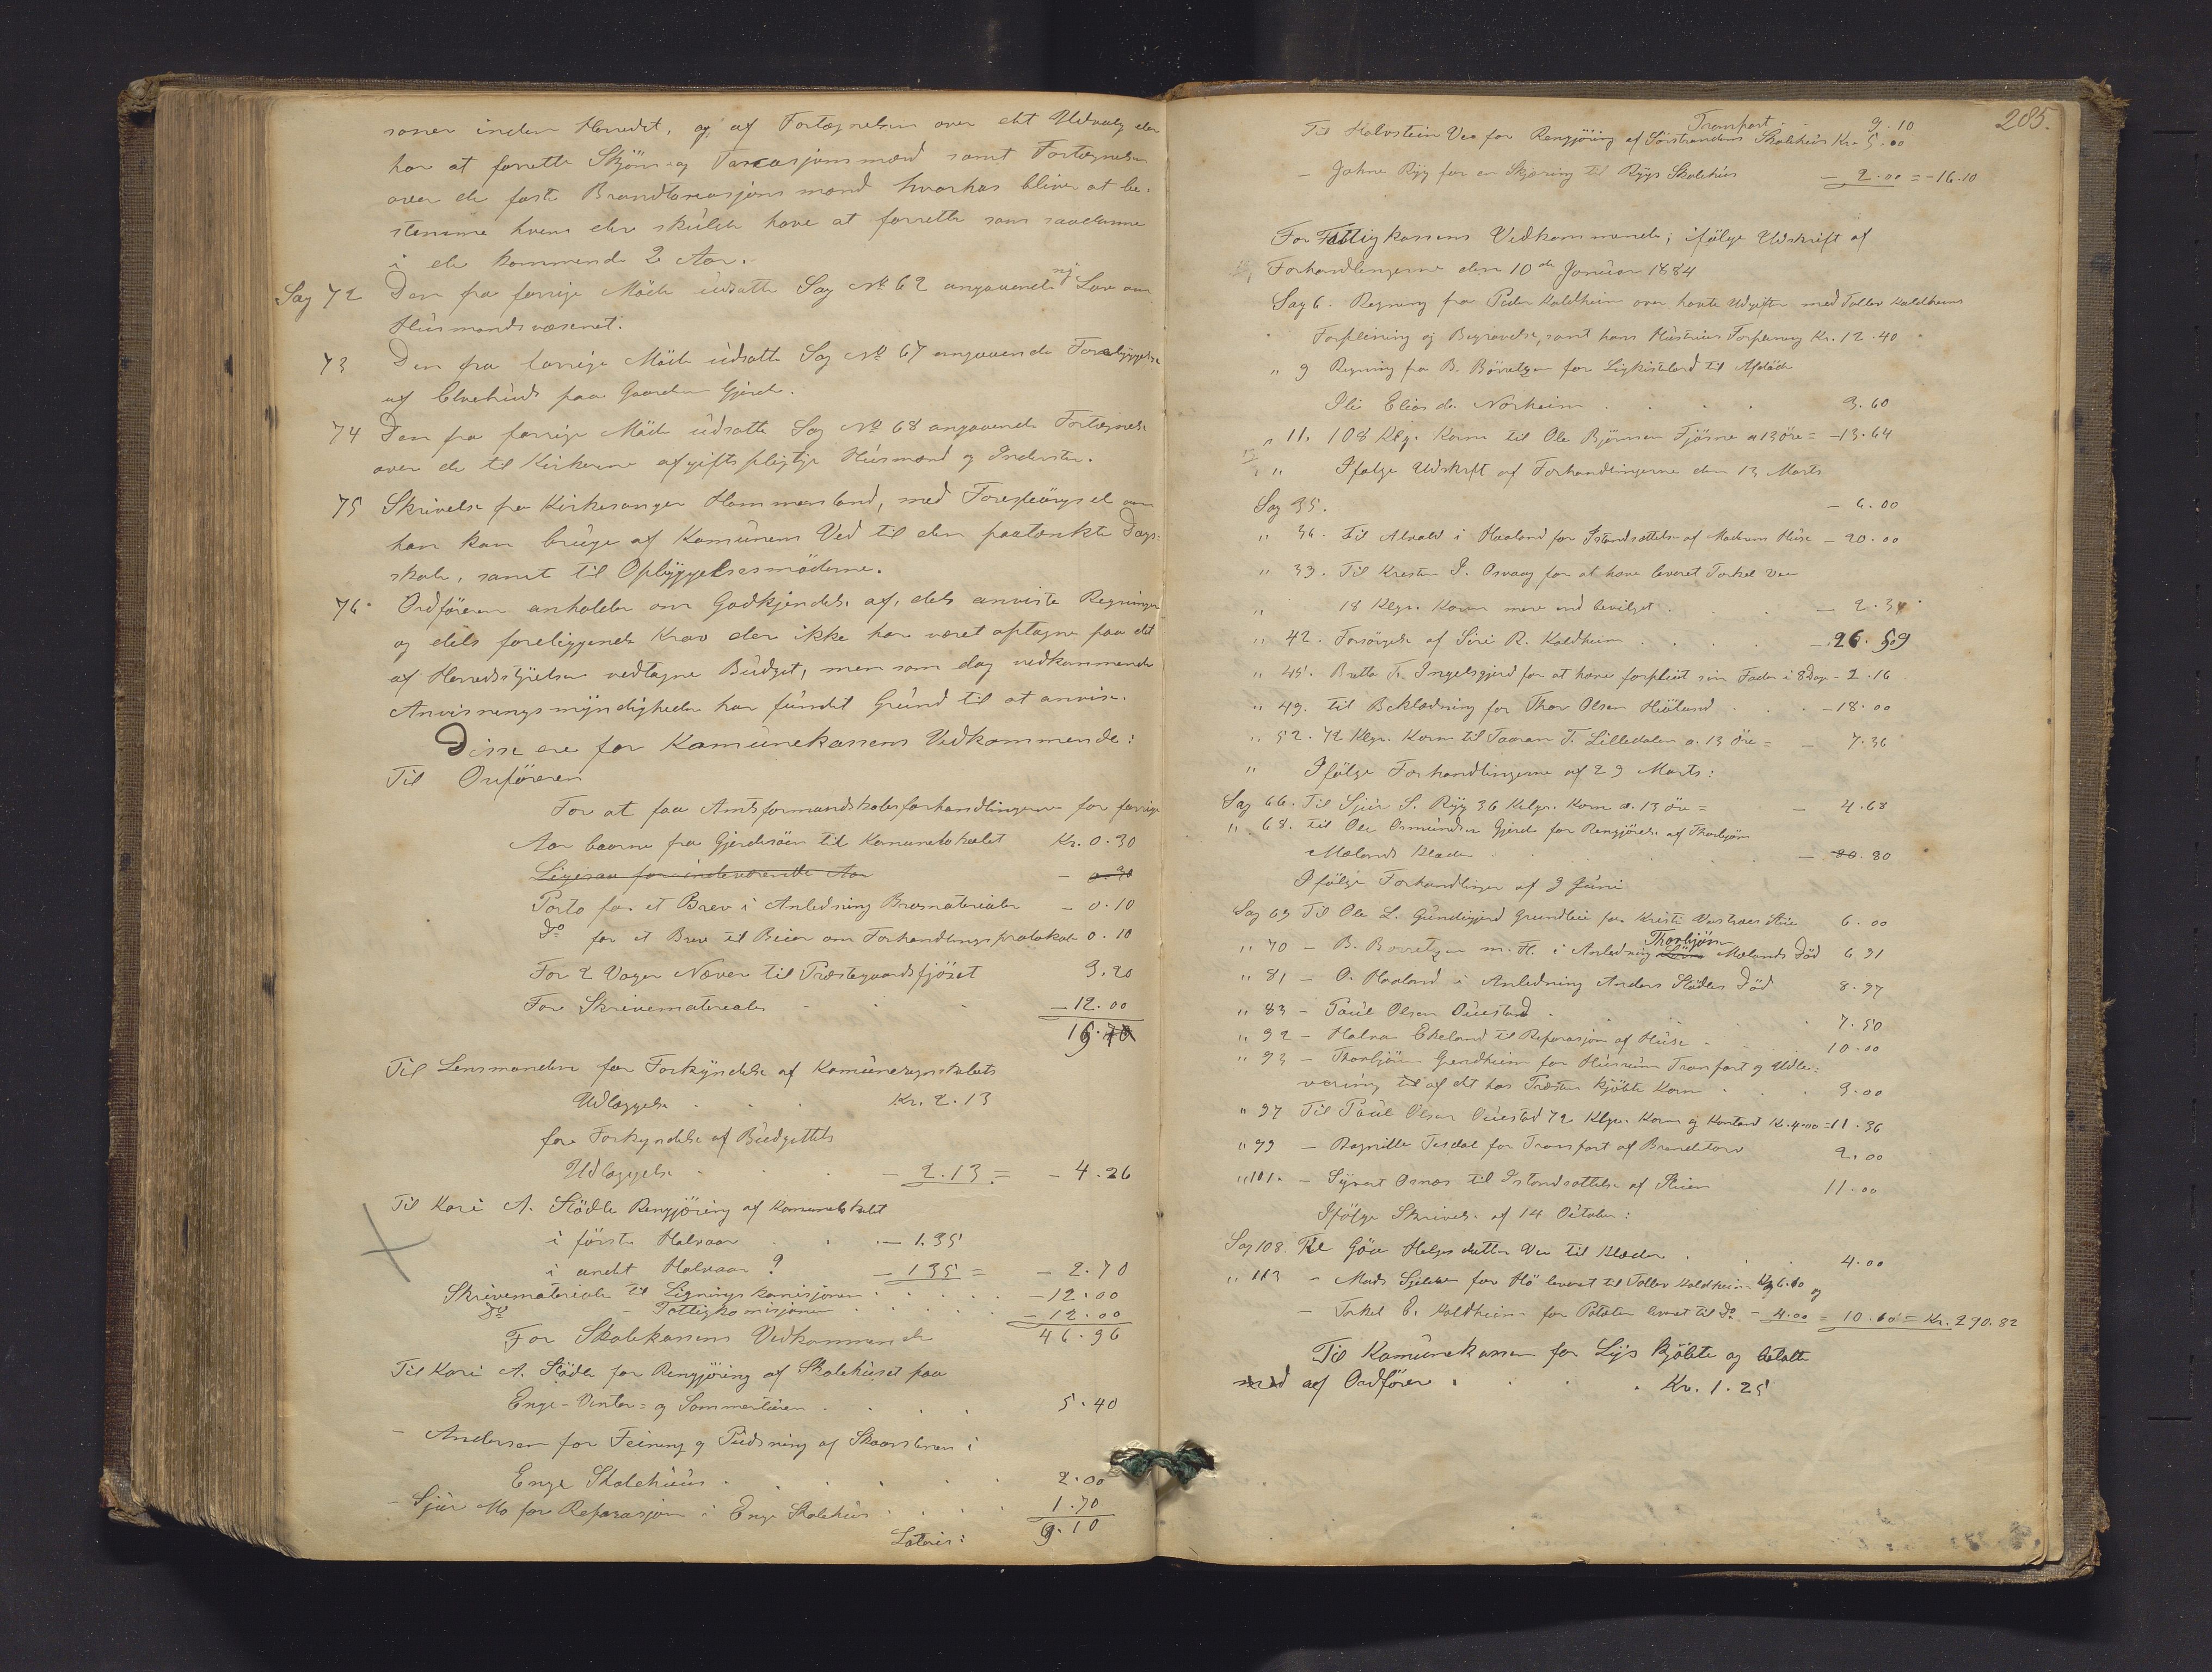 soner inden Herredet, og af Fortegnelsen over det Udvalg der
har at forrette Skjøns og Taxasjonsmænd samt Fortegnelse
over de faste Brandtaxasjonsmænd hvorhos bliver at be-
stemme hvem der skulde have at forrette som saadanne
i de kommende 2 Aar.
Sag 72 Den fra forrige Möde udsatte Sag No 62 angaaende ny Lov om
Husmandsvæsenet.
73 Den fra forrige Möde udsatte Sag No 67 angaaende Forebyggelse
af Elvebrud paa Gaarden Gjerde.
74 Den fra forrige Möde udsatte Sag No 68 angaaende Fortegnelse
over de til Kirkerne afgiftspligtige Husmænd og Inderster.
75 Skrivelse fra Kirkesanger Hammersland, med Forespörgsel om
han kan bruge af Kamunens Ved til den paatænkte Dags-
skole, samt til Opbyggelsesmöderne.
76. Ordföreren anholder om Godkjendelse af, dels anviste Regninger
og dels foreliggende Krav der ikke har været optagne paa det
af Herredsstyrelsen vedtagne Budget, men som dog vedkommende
Anvisningsmyndigheder har fundet Grund til at anvise.
Disse ere for Kamunekassens Vedkommende:
Til Orföreren
For at faa Amtsformandskabsforhandlingerne for forrige
Aar baarne fra Gjerdesöen til Kamunelokalet Kr. 0.30
Ligesaa for indeværende Aar - 0.30
Porto for et Brev i Anledning Bromaterialer - 0.10
Do for et Brev til Beier om Forhandlingsprotokol - 0.10
For 2 Voger Næver til Præstegaardsfjöset 3.20
For Skrivematerialer - 12.00
16.70
Til Lensmanden for Forkyndelse af Kamuneregnskabets
Udlæggelse Kr. 2.13
for Forkyndelse af Budgettets
Udlæggelse - 2.13 = - 4.26
Til Kari A. Stödle Rengjöring af Kamunelokalet
i förste Halvaar - 1.35
i andet Halvaar ? - 135 = - 2.70
Skrivematerialer til Ligningskomisjonen - 12.00
Do - Fattigkomisjonen - 12.00
46.96
For Skolekassens Vedkommende
Til Kari A. Stödle for Rengjöring af Skolehuset paa
Enge - Vinter = og Sommertiden 5.40
- Andersen for Feining og Pudsning af Skorstenen i
Enge Skolehuus 2.00
- Sjur Mo for Reparasjon i Enge Skolehus 1.70
Lateris: 9.10
285.
Transport 9.10
Til Halvstein Vee for Rengjöring af Sörstrandens Skolehus Kr. 5.00
- Johne Ryg for en Skjæring til Rygs Skolehus - 2.00 = - 16.10
For Fattigkassens Vedkommende; ifölge Udskrift af
Forhandlingerne den 10de Januar 1884
Sag 6. Regning fra Peder Kaldheim over havte Udgifter med Tollev Kaldheims
Forpleining og Begravelse, samt hans Hustrues Forpleining Kr. 12.40
" 9 Regning fra B. Börretzen for Ligkistebord til Afdöde
Pli Elias d. Norheim 3.60
" 11. 108 Klg. Korn til Ole Björnsen Fjösne a 13 öre = - 13.64
" Ifølge Udskrift af Forhandlingerne den 13 Marts
Sag 35. - 6.00
" 36. Til Alvald i Haaland for Istandsættelse af Moderens Huse - 20.00
" 33. Til Kresten I. Osvaag for at have leveret Torkel Vee
" 18 Klgr. Korn mere end bevilget - 2.34
" 42. Forsörgelse af Siri R. Kaldheim - 26.59
" 45. Brette T. Ingelsgjerd for at have forpleiet sin Fader i 8 Dage - 2.16
" 49. til Beklædning for Thor Olsen Hiöland - 18.00
" 52. 72 Klgr. Korn til Taaran T. Lilledalen a. 13 Öre = - 7.36
" Ifölge Forhandlingerne af 29 Marts:
Sag 66. Til Sjur S. Ryg 36 Klgr. Korn a. 13 öre = - 4.68
" 68. til Ole Osmundsen Gjerde for Rengjörelse af Thorbjörn
Mælands Klæder - 80.80
Ifölge Forhandlinger af 9 Juni
Sag 69 Til Ole L. Gundegjerd Grundleie for Kristi Vestraas Stue 6.00
" 70 - B. Borretzen m. Fl. i Anledning Thorbjörn Mælands Död 6.91
" 81 - O. Haaland i Anledning Anders Stödles Död 8.97
" 83 - Paul Olsen Ouestad 7.50
" 92 - Halvor Ekeland til Reparasjon af Huse 10.00
" 93 - Thorbjörn Gjerdheim for Husrum Transport og Udle-
vering til af det hos Præsten kjöbte Korn 3.00
" 97 Til Paul Olsen Ouestad 72 Klgr. Korn og Kontant Kr. 4.00 = 11.36
" 99 - Ragnilde Tesdal for Transport af Brandetorv 2.00
" 101. - Syvert Osnes til Istandsættelse af Stuen 11.00
Ifölge Skrivelse af 14 October:
Sag 108. Til Göa Helgesdatter Vee til Klæder 4.00
" 113 - Mads Sjelde for Hö leveret til Tollev Kaldheim Kr 6.60 og
- Torkel E. Kaldheim for Poteter leveret til Do - 4.00 = 10.60 = Kr. 290.82
Til Kamunekassen for Lys kjöbte og betalte
af Ordförer Kr. 1.25